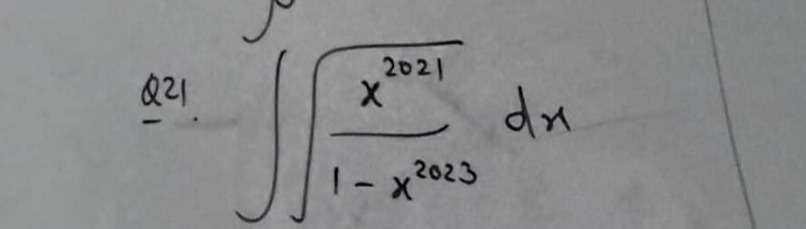 Q21. ∫ √(x^2021 / (1 - x^2023)) dx